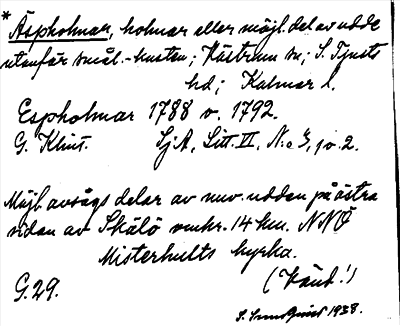 * Äspholmar, holmar eller möjl. del av udde
utanför smål.-kusten; Västrum sn; S. Tjusts
hd; Kalmar l.
Espholmar 1788 o. 1792.
G. Klint. Sj.A, Litt. II, N:o 3, jo. 2.
Möjl. avsågs delar av nuv. udden på östra
sidan av Skälö omkr. 14 km. NNÖ
Misterhults kyrka.
G.29. (Vänd!)
1938.